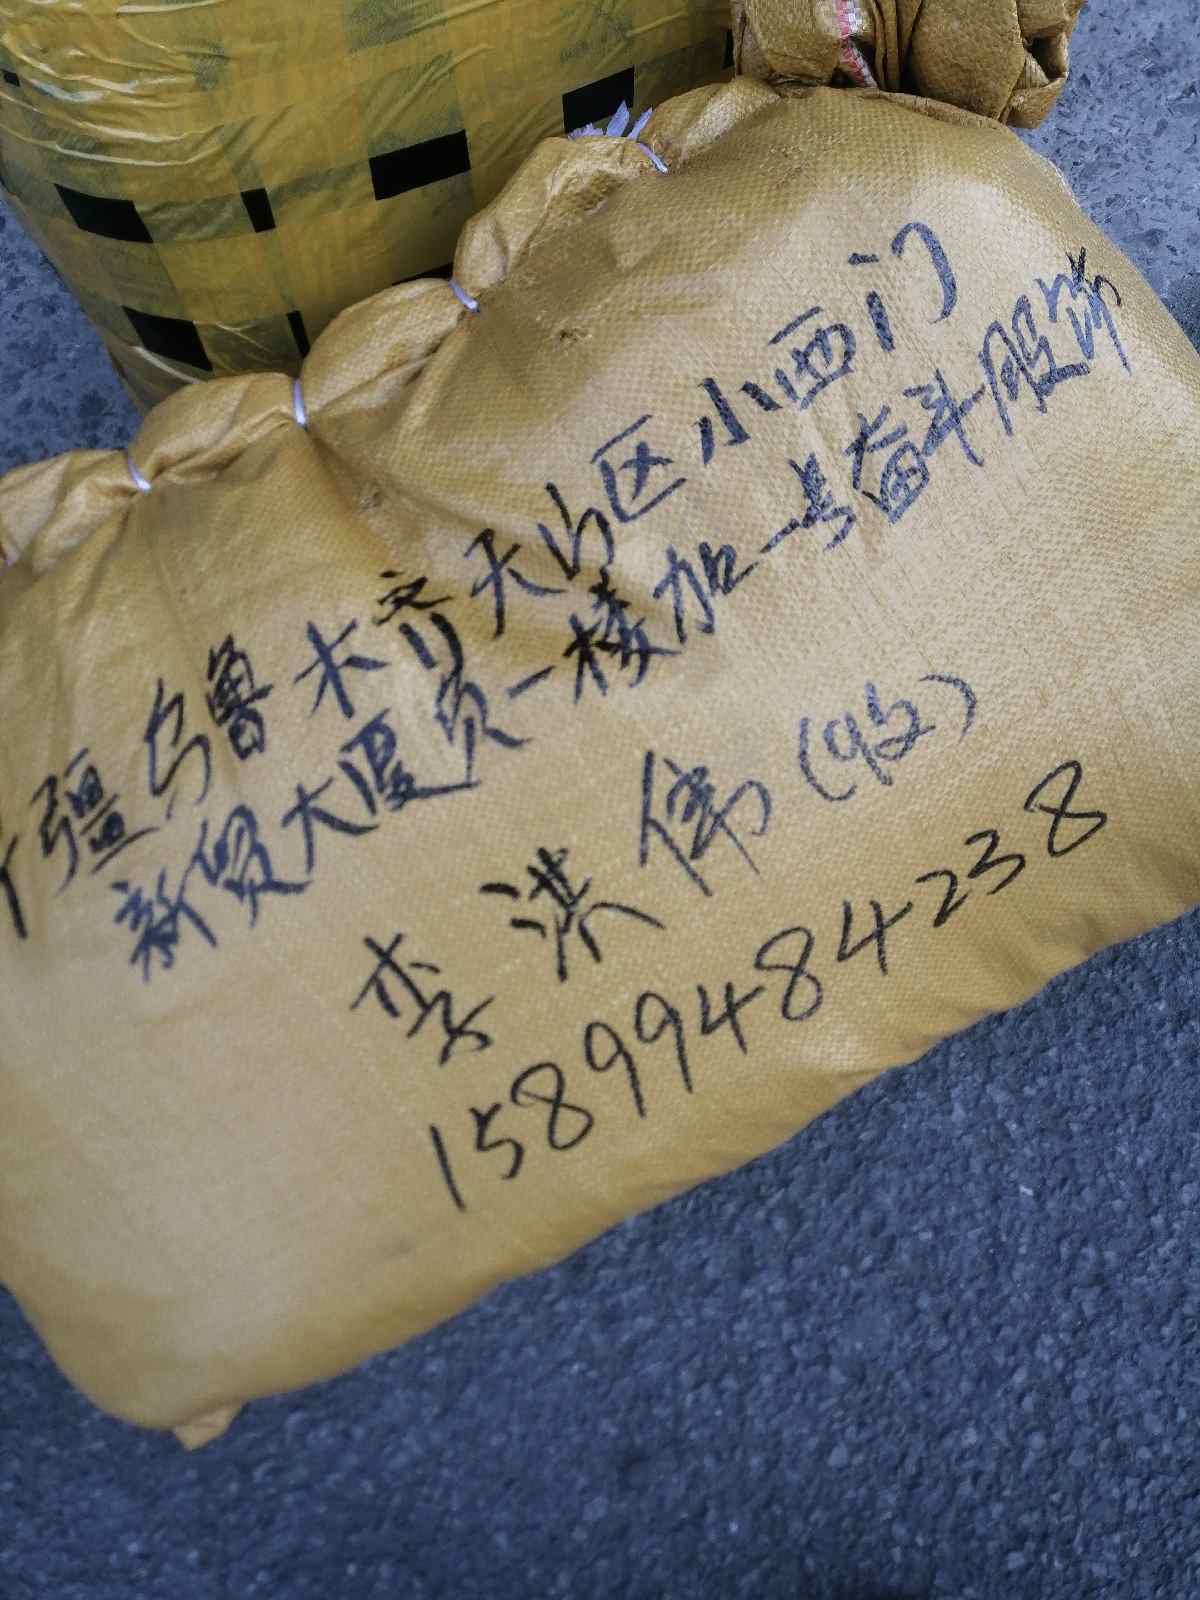 疆乌鲁木齐天山区小西门
新贸大厦负一楼加一号奋斗服饰
李洪伟(收)
15899484238